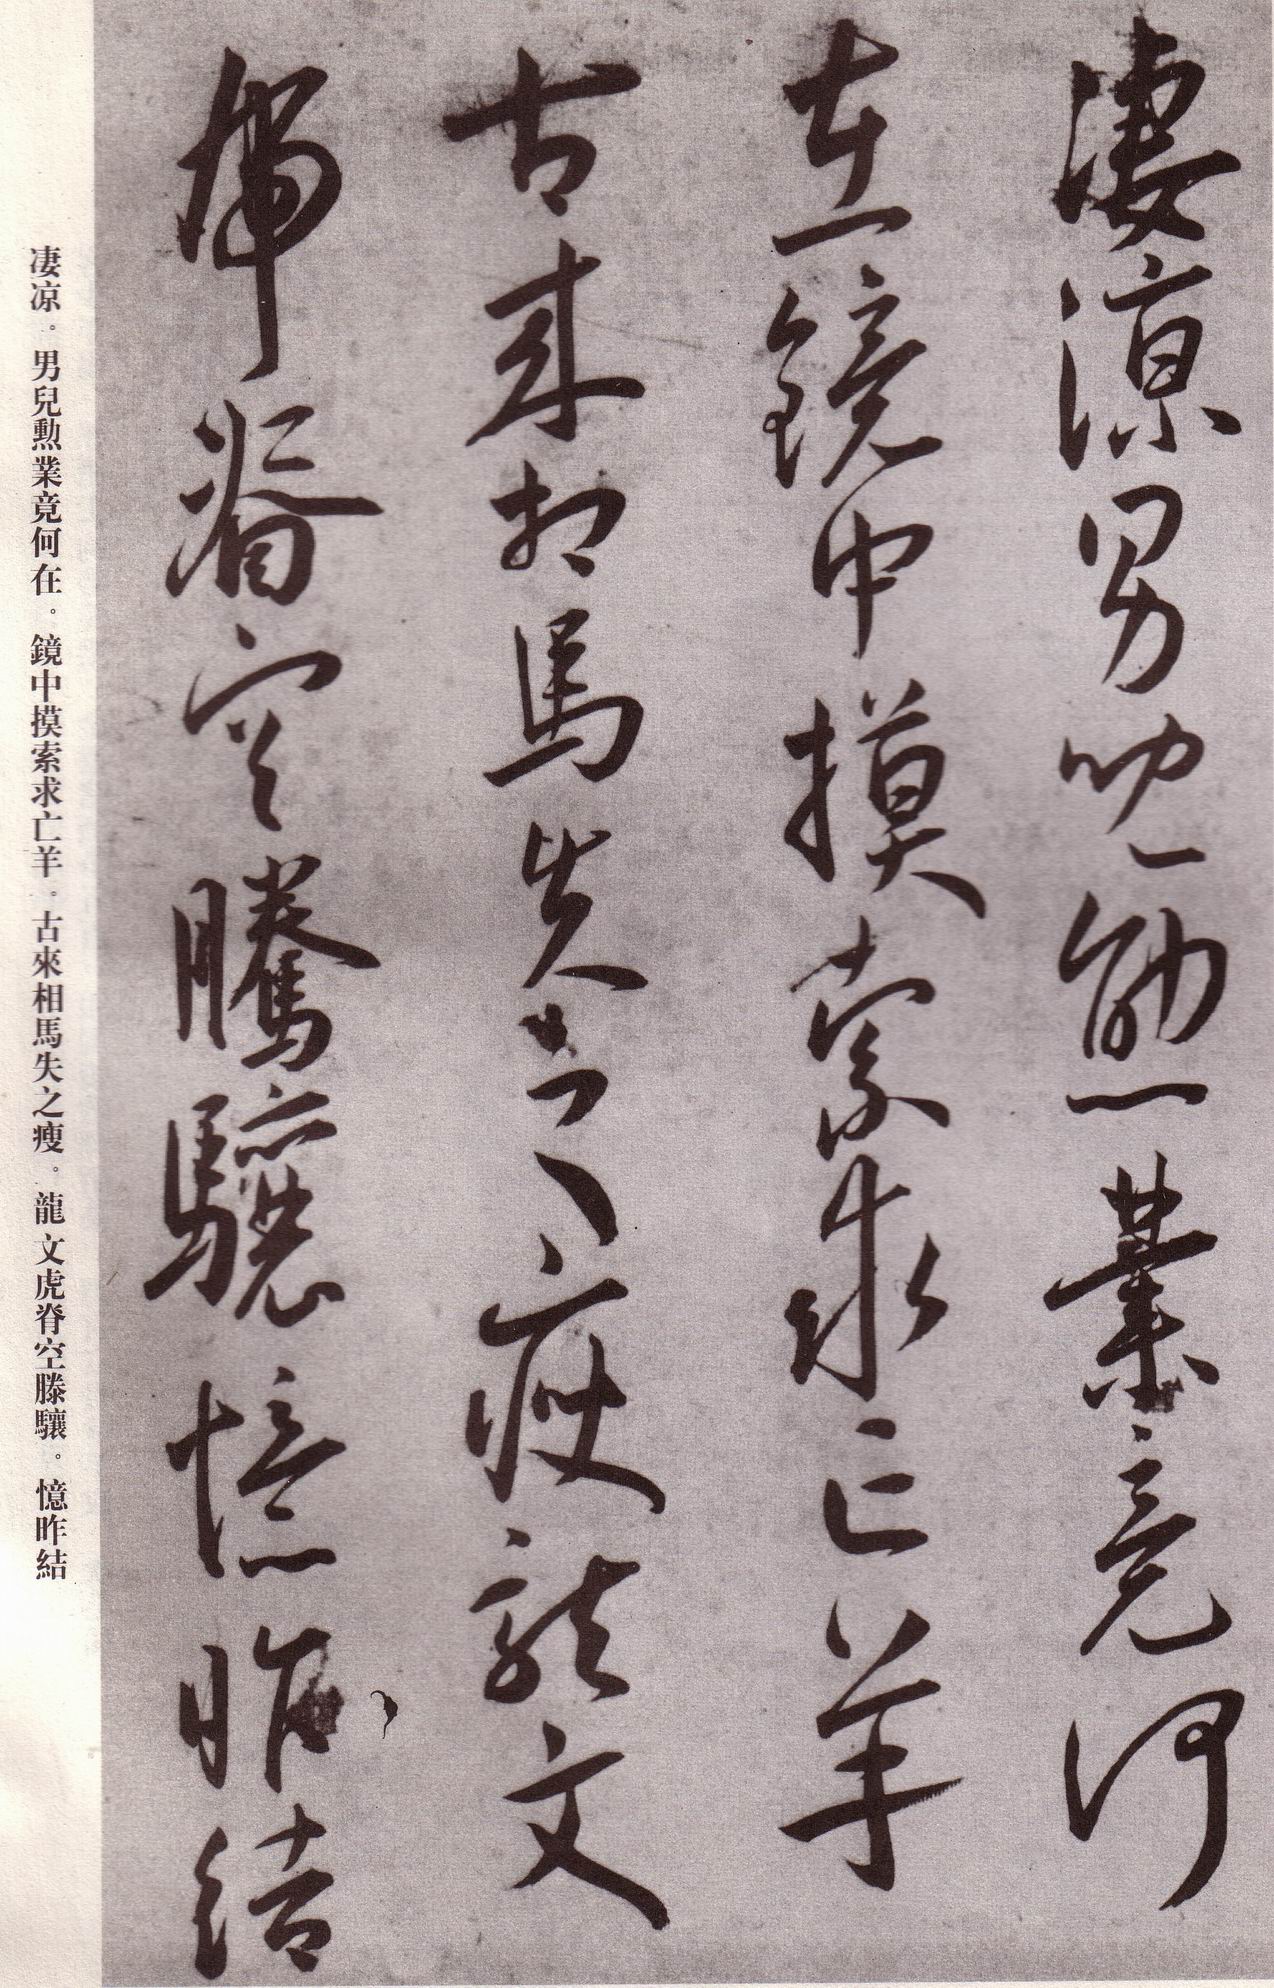 凄涼男兒勳業竟何
在鏡中摸索求亡羊
古來相馬失之瘦龍文
虎脊空騰驤憶昨結
凄凉。男兒勳業竟何在。鏡中摸索求亡羊。古來相馬失之瘦。龍文虎脊空騰驤。憶昨結